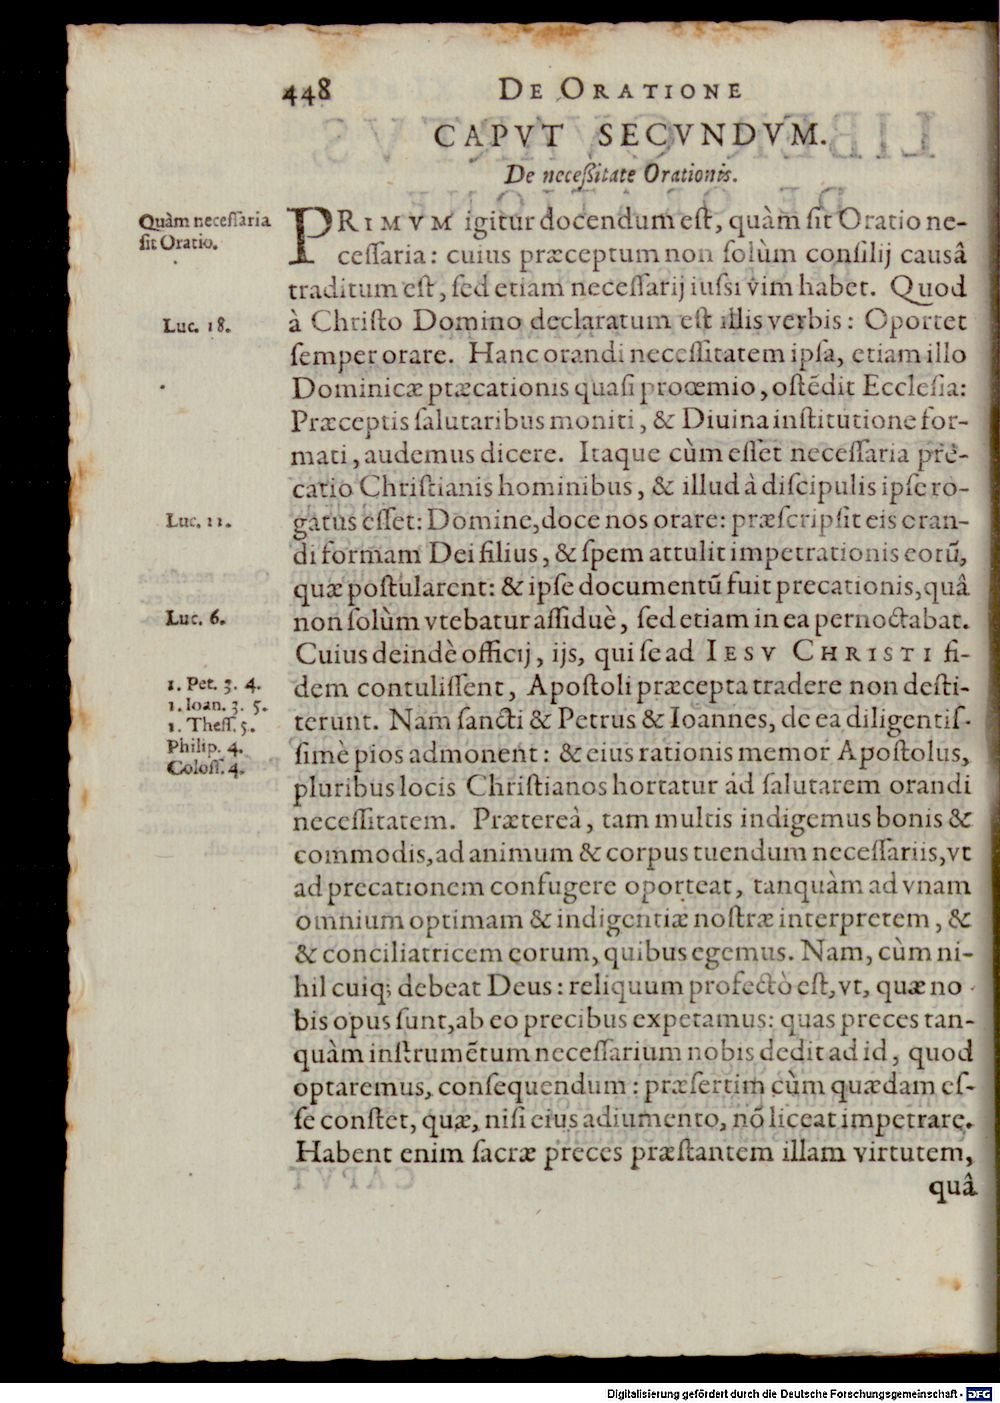 448 DE ORATIONE
CAPVT SECVNDVM.
De neceſsitate Orationis.
Quàm neceſſaria
ſit Oratio.
PRIMVM igitur docendum eſt, quàm ſit Oratio ne-
ceſſaria: cuius præceptum non ſolùm conſilij causâ
traditum eſt, ſed etiam neceſſarij iuſsi vim habet. Quod
Luc. 18.
à Chriſto Domino declaratum eſt illis verbis: Oportet
ſemper orare. Hanc orandi neceſſitatem ipſa, etiam illo
Dominicæ præcationis quaſi proœmio, oſtẽdit Eccleſia:
Præceptis ſalutaribus moniti, & Diuina inſtitutione for-
mati, audemus dicere. Itaque cùm eſſet neceſſaria pre-
catio Chriſtianis hominibus, & illud à diſcipulis ipſe ro-
Luc. 11.
gatus eſſet: Domine, doce nos orare: præſcripſit eis oran-
di formam Dei filius, & ſpem attulit impetrationis eorũ,
quæ poſtularent: & ipſe documentũ fuit precationis, quâ
Luc. 6.
non ſolùm vtebatur aſſiduè, ſed etiam in ea pernoctabat.
Cuius deindè officij, ijs, qui ſe ad IESV CHRISTI fi-
1. Pet. 3. 4.
1. Ioan. 3. 5.
1. Theſſ. 5.
Philip. 4.
Coloſſ. 4.
dem contuliſſent, Apoſtoli præcepta tradere non deſti-
terunt. Nam ſancti & Petrus & Ioannes, de ea diligentiſ-
ſimè pios admonent: & eius rationis memor Apoſtolus,
pluribus locis Chriſtianos hortatur ad ſalutarem orandi
neceſſitatem. Prætereà, tam multis indigemus bonis &
commodis, ad animum & corpus tuendum neceſſariis, vt
ad precationem confugere oporteat, tanquàm ad vnam
omnium optimam & indigentiæ noſtræ interpretem, &
& conciliatricem eorum, quibus egemus. Nam, cùm ni-
hil cuiq; debeat Deus: reliquum profectò eſt, vt, quæ no-
bis opus ſunt, ab eo precibus expetamus: quas preces tan-
quàm inſtrumẽtum neceſſarium nobis dedit ad id, quod
optaremus, conſequendum: præſertim cùm quædam eſ-
ſe conſtet, quæ, niſi eius adiumento, nõ liceat impetrare.
Habent enim ſacræ preces præſtantem illam virtutem,
quâ
Digitalisierung gefördert durch die Deutsche Forschungsgemeinschaft - DFG